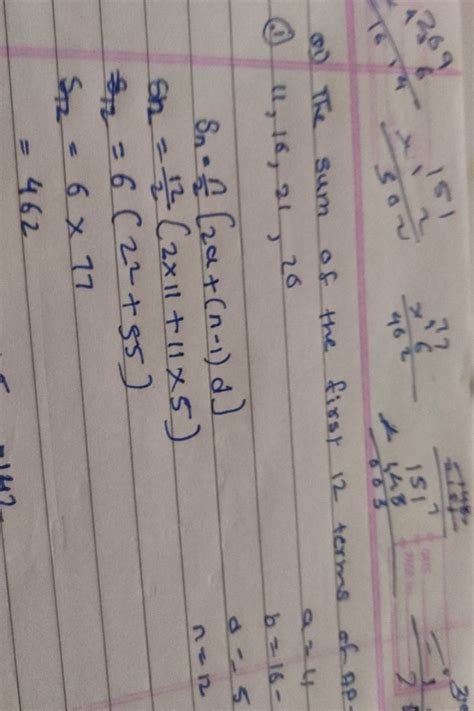 269
× 6
16 4
151
× 2
302
77
× 6
462
151
448
603
Q1) The sum of the first 12 terms of AP-
① 11, 16, 21, 26
a = 4
b = 16 -
d = 5
n = 12
Sn = n/2 [2a + (n-1) d]
S12 = 12/2 (2×11 + 11×5)
S12 = 6 (22 + 55)
S12 = 6 × 77
= 462
=142